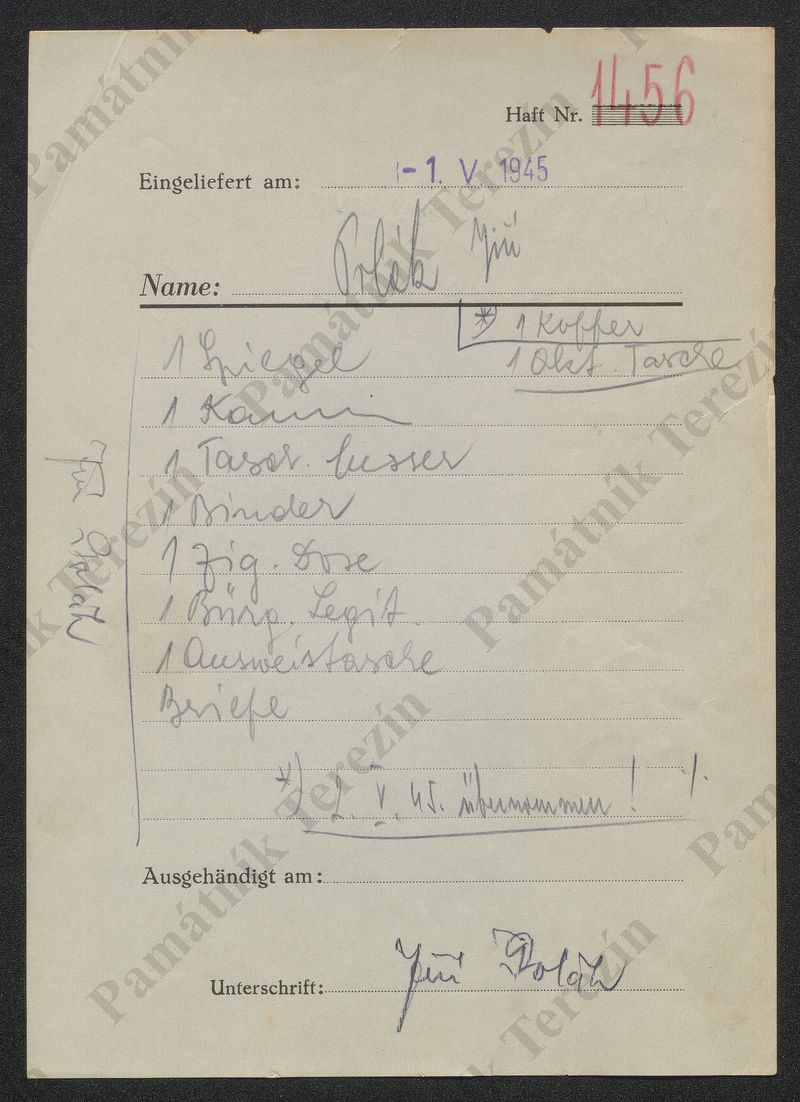 Haft Nr. 1456
Eingeliefert am: - 1. V. 1945
Name: Polák Jiří
*) 1 Koffer
1 Spiegel
1 Akt. Tasche
1 Kamm
1 Tasch. Messer
1 Binder
1 Zig. Dose
1 Bürg. Legit.
1 Ausweistasche
Briefe
Jiří Polák
*) 2. V. 45. übernommen! ./.
Ausgehändigt am:
Unterschrift: Jiří Polák
Památník Terezín